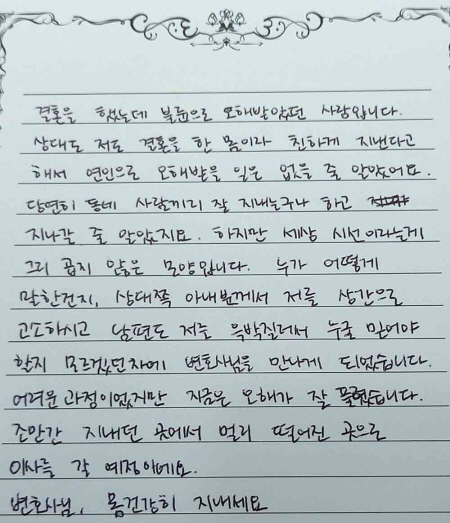 결혼을 했는데 불륜으로 오해받았던 사람입니다.
상대도 저도 결혼을 한 몸이라 친하게 지낸다고
해서 연인으로 오해받을 일은 없을 줄 알았어요.
당연히 동네 사람끼리 잘 지내는구나 하고
지나갈 줄 알았지요. 하지만 세상 시선이라는게
그리 곱지 않은 모양입니다. 누가 어떻게
말한건지, 상대쪽 아내분께서 저를 상간으로
고소하시고 남편도 저를 윽박질러서 누굴 믿어야
할지 모르겠던차에 변호사님을 만나게 되었습니다.
어려운 과정이었지만 지금은 오해가 잘 풀렸습니다.
조만간 지내던 곳에서 멀리 떨어진 곳으로
이사를 갈 예정이에요.
변호사님, 몸건강히 지내세요